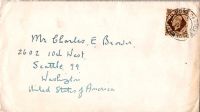 Mr Charles E Brown
2602 10d West
Seattle 99
Washington
United States of America